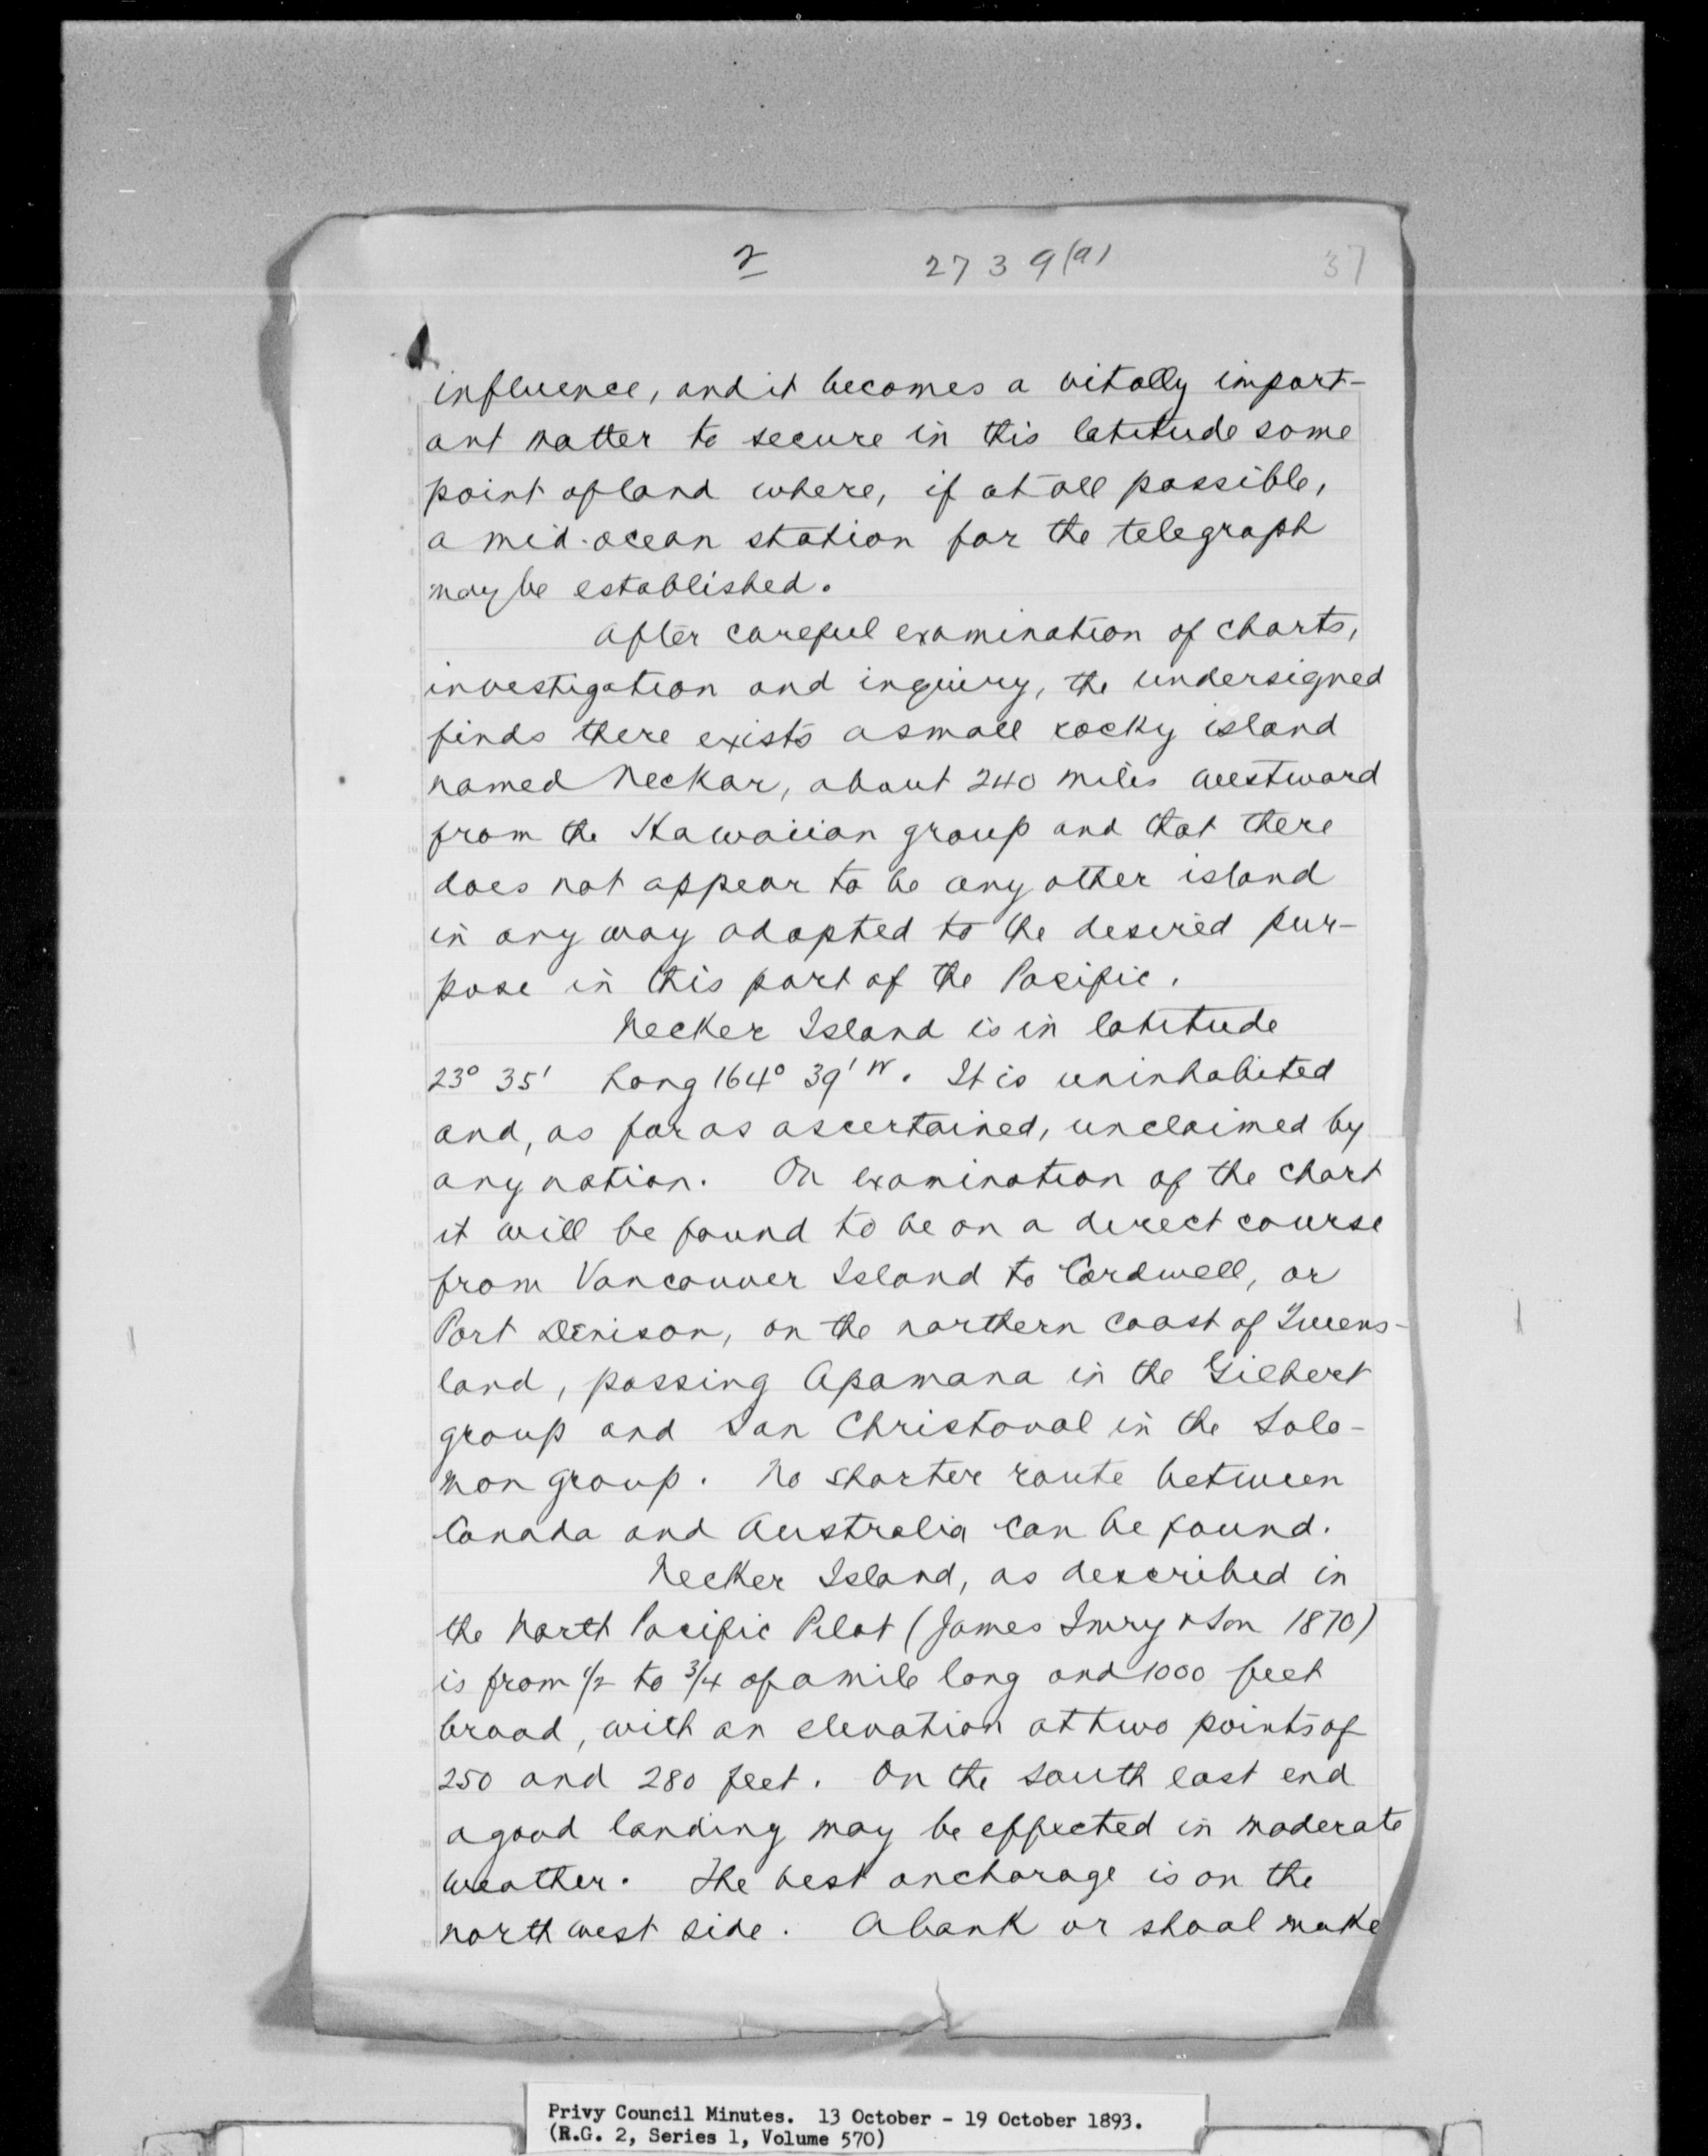 2 2739(a) 37
influence, and it becomes a vitally import-
ant matter to secure in this latitude some
point of land where, if at all possible,
a mid-ocean station for the telegraph
may be established.
After careful examination of charts,
investigation and inquiry, the undersigned
finds there exists a small rocky island
named Neckar, about 240 miles westward
from the Hawaiian group and that there
does not appear to be any other island
in any way adapted to the desired pur-
pose in this part of the Pacific.
Necker Island is in latitude
23° 35' Long 164° 39' W. It is uninhabited
and, as far as ascertained, unclaimed by
any nation. On examination of the chart
it will be found to be on a direct course
from Vancouver Island to Cardwell, or
Port Denison, on the northern coast of Queens-
land, passing Apamana in the Gilbert
group and San Christoval in the Solo-
mon group. No shorter route between
Canada and Australia can be found.
Necker Island, as described in
the North Pacific Pilot (James Imry & Son 1870)
is from 1/2 to 3/4 of a mile long and 1000 feet
broad, with an elevation at two points of
250 and 280 feet. On the south east end
a good landing may be effected in moderate
weather. The best anchorage is on the
north west side. A bank or shoal make
Privy Council Minutes. 13 October - 19 October 1893.
(R.G. 2, Series 1, Volume 570)